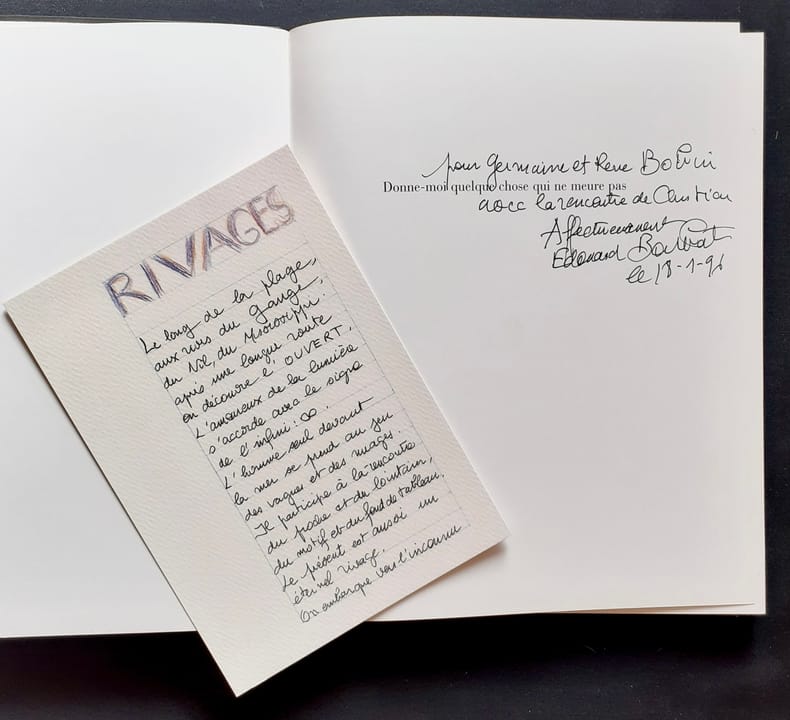 RIVAGES
Le long de la plage,
aux rives du Gange,
du Nil, du Mississippi.
après une longue route
on découvre l'OUVERT.
L'amoureux de la lumière
s'accorde avec le signe
de l'infini : ∞.
L'homme seul devant
la mer se prend au jeu
des vagues et des nuages.
Il participe à la rencontre
du proche et du lointain,
du motif et du fond de tableau.
Le présent est aussi un
éternel rivage.
On embarque vers l'inconnu
pour Germaine et René
Donne-moi quelque chose qui ne meure pas
avec la rencontre de Christian
Affectueusement
Edouard Boubat
le 18-1-96